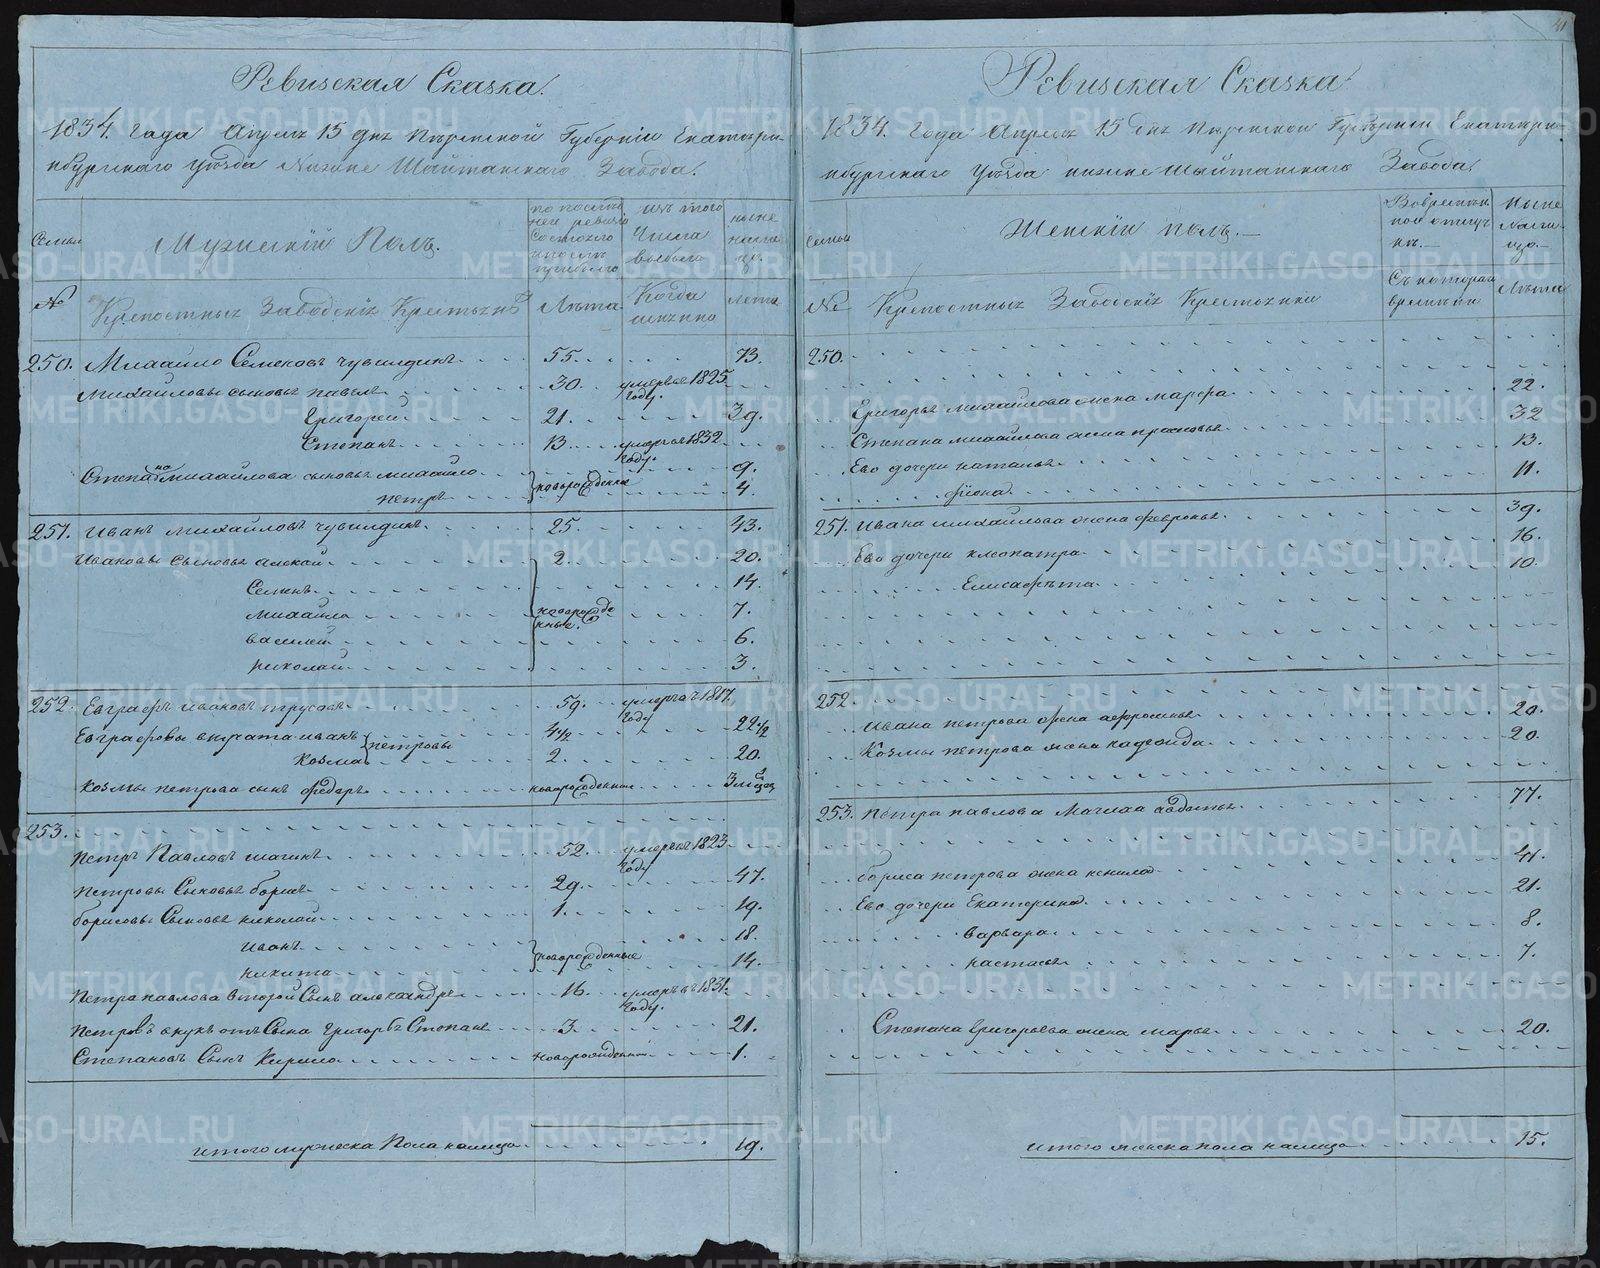 41
Ревизская Сказка.
1834. года Апреля 15 дня Пермской Губерніи Екатери-
нбургскаго уѣзда Нижне Шайтанскаго Завода.
Семьи
Мужескій Полъ.
по послѣд
ней ревизіи
Состояло
и послѣ
прибыло
изъ того
Числа
выбыло
ныне
на лицо
№
Крепостныхъ Заводскихъ Крестьянъ
Лѣта
Когда
имянно
лета
250. Михайло Семеновъ Чувилдинъ 55. 73.
Михайловы сыновья павелъ 30. умеръ въ 1825 году.
Григорей 21. 39.
Степанъ 13. умеръ въ 1832 году.
Степана Михайлова сыновья михайло 9.
петръ новорожденныя 4.
251. Иванъ михайловъ чувилдинъ 25. 43.
Ивановы Сыновья алексей 2. 20.
Семенъ 14.
михайло новорожденные. 7.
василей 6.
николай 3.
252. Евграфъ ивановъ трусовъ 59. умеръ въ 1817 году
Евграфовы внучата иванъ петровы 4 1/2 22 1/2
Козма 2. 20.
Козмы петрова сынъ федоръ новорожденный 3 мѣсяц
253.
петръ Павловъ магинъ 52. умеръ въ 1823 году
петровы Сыновья борисъ 29. 47.
борисовы Сыновья николай 1. 19.
иванъ новорожденные 18.
никита 14.
петра павлова второй Сынъ александръ 16. умеръ въ 1831 году.
петровъ внукъ отъ Сына григорья Степанъ 3. 21.
Степановъ Сынъ Кирило новорожденной 1.
итого мужеска Пола налицо 19.
Ревизская Сказка
1834. года Апреля 15 дня Пермской Губерніи Екатери-
нбургскаго уѣзда нижне Шайтанскаго Завода.
семьи
Женскій полъ.
Во времян
ной отлуч
кѣ.
Ныне
на ли
цо.
№
Крепостныхъ Заводскихъ Крестьянки
Съ котораго
времяни
Лѣта
250.
Григорья михайлова жена марфа 22.
Степана михайлова жена прасковья 32
Ево дочери наталья 13.
фіона 11.
251. Ивана михайлова жена февронья 39.
Ево дочери клеопатра 16.
Елисафѣта 10.
252.
Ивана петрова жена афросинья 20.
Козмы петрова жена надежда 20.
253. петра павлова Мачиха авдотья 77.
бориса петрова жена ненила 41.
Ево дочери Екатерина 21.
варвара 8.
настасья 7.
Степана Григорьева жена марья 20.
итого женска пола налицо 15.
METRIKI.GASO-URAL.RU